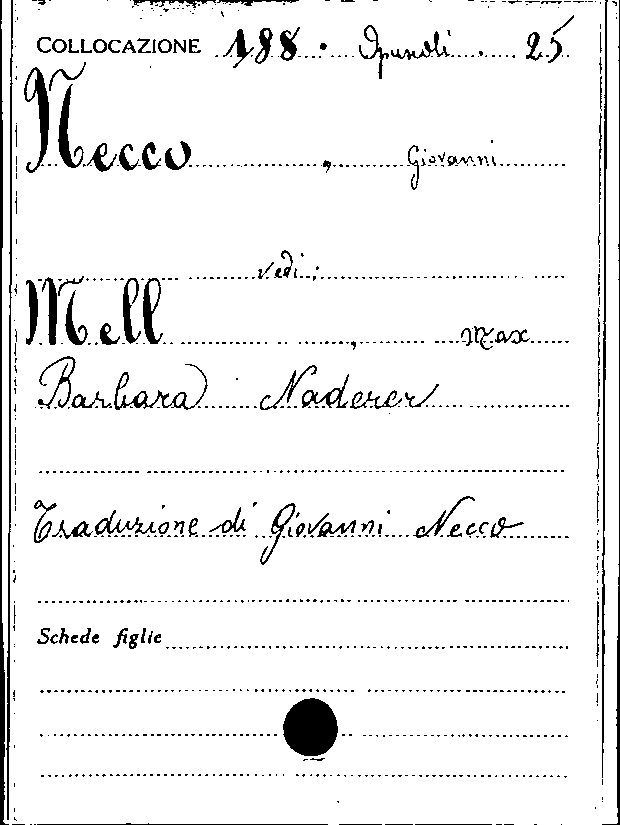 COLLOCAZIONE 188. Opuscoli. 25
Necco, Giovanni
vedi:
Mell, Max
Barbara Naderer
Traduzione di Giovanni Necco
Schede figlie